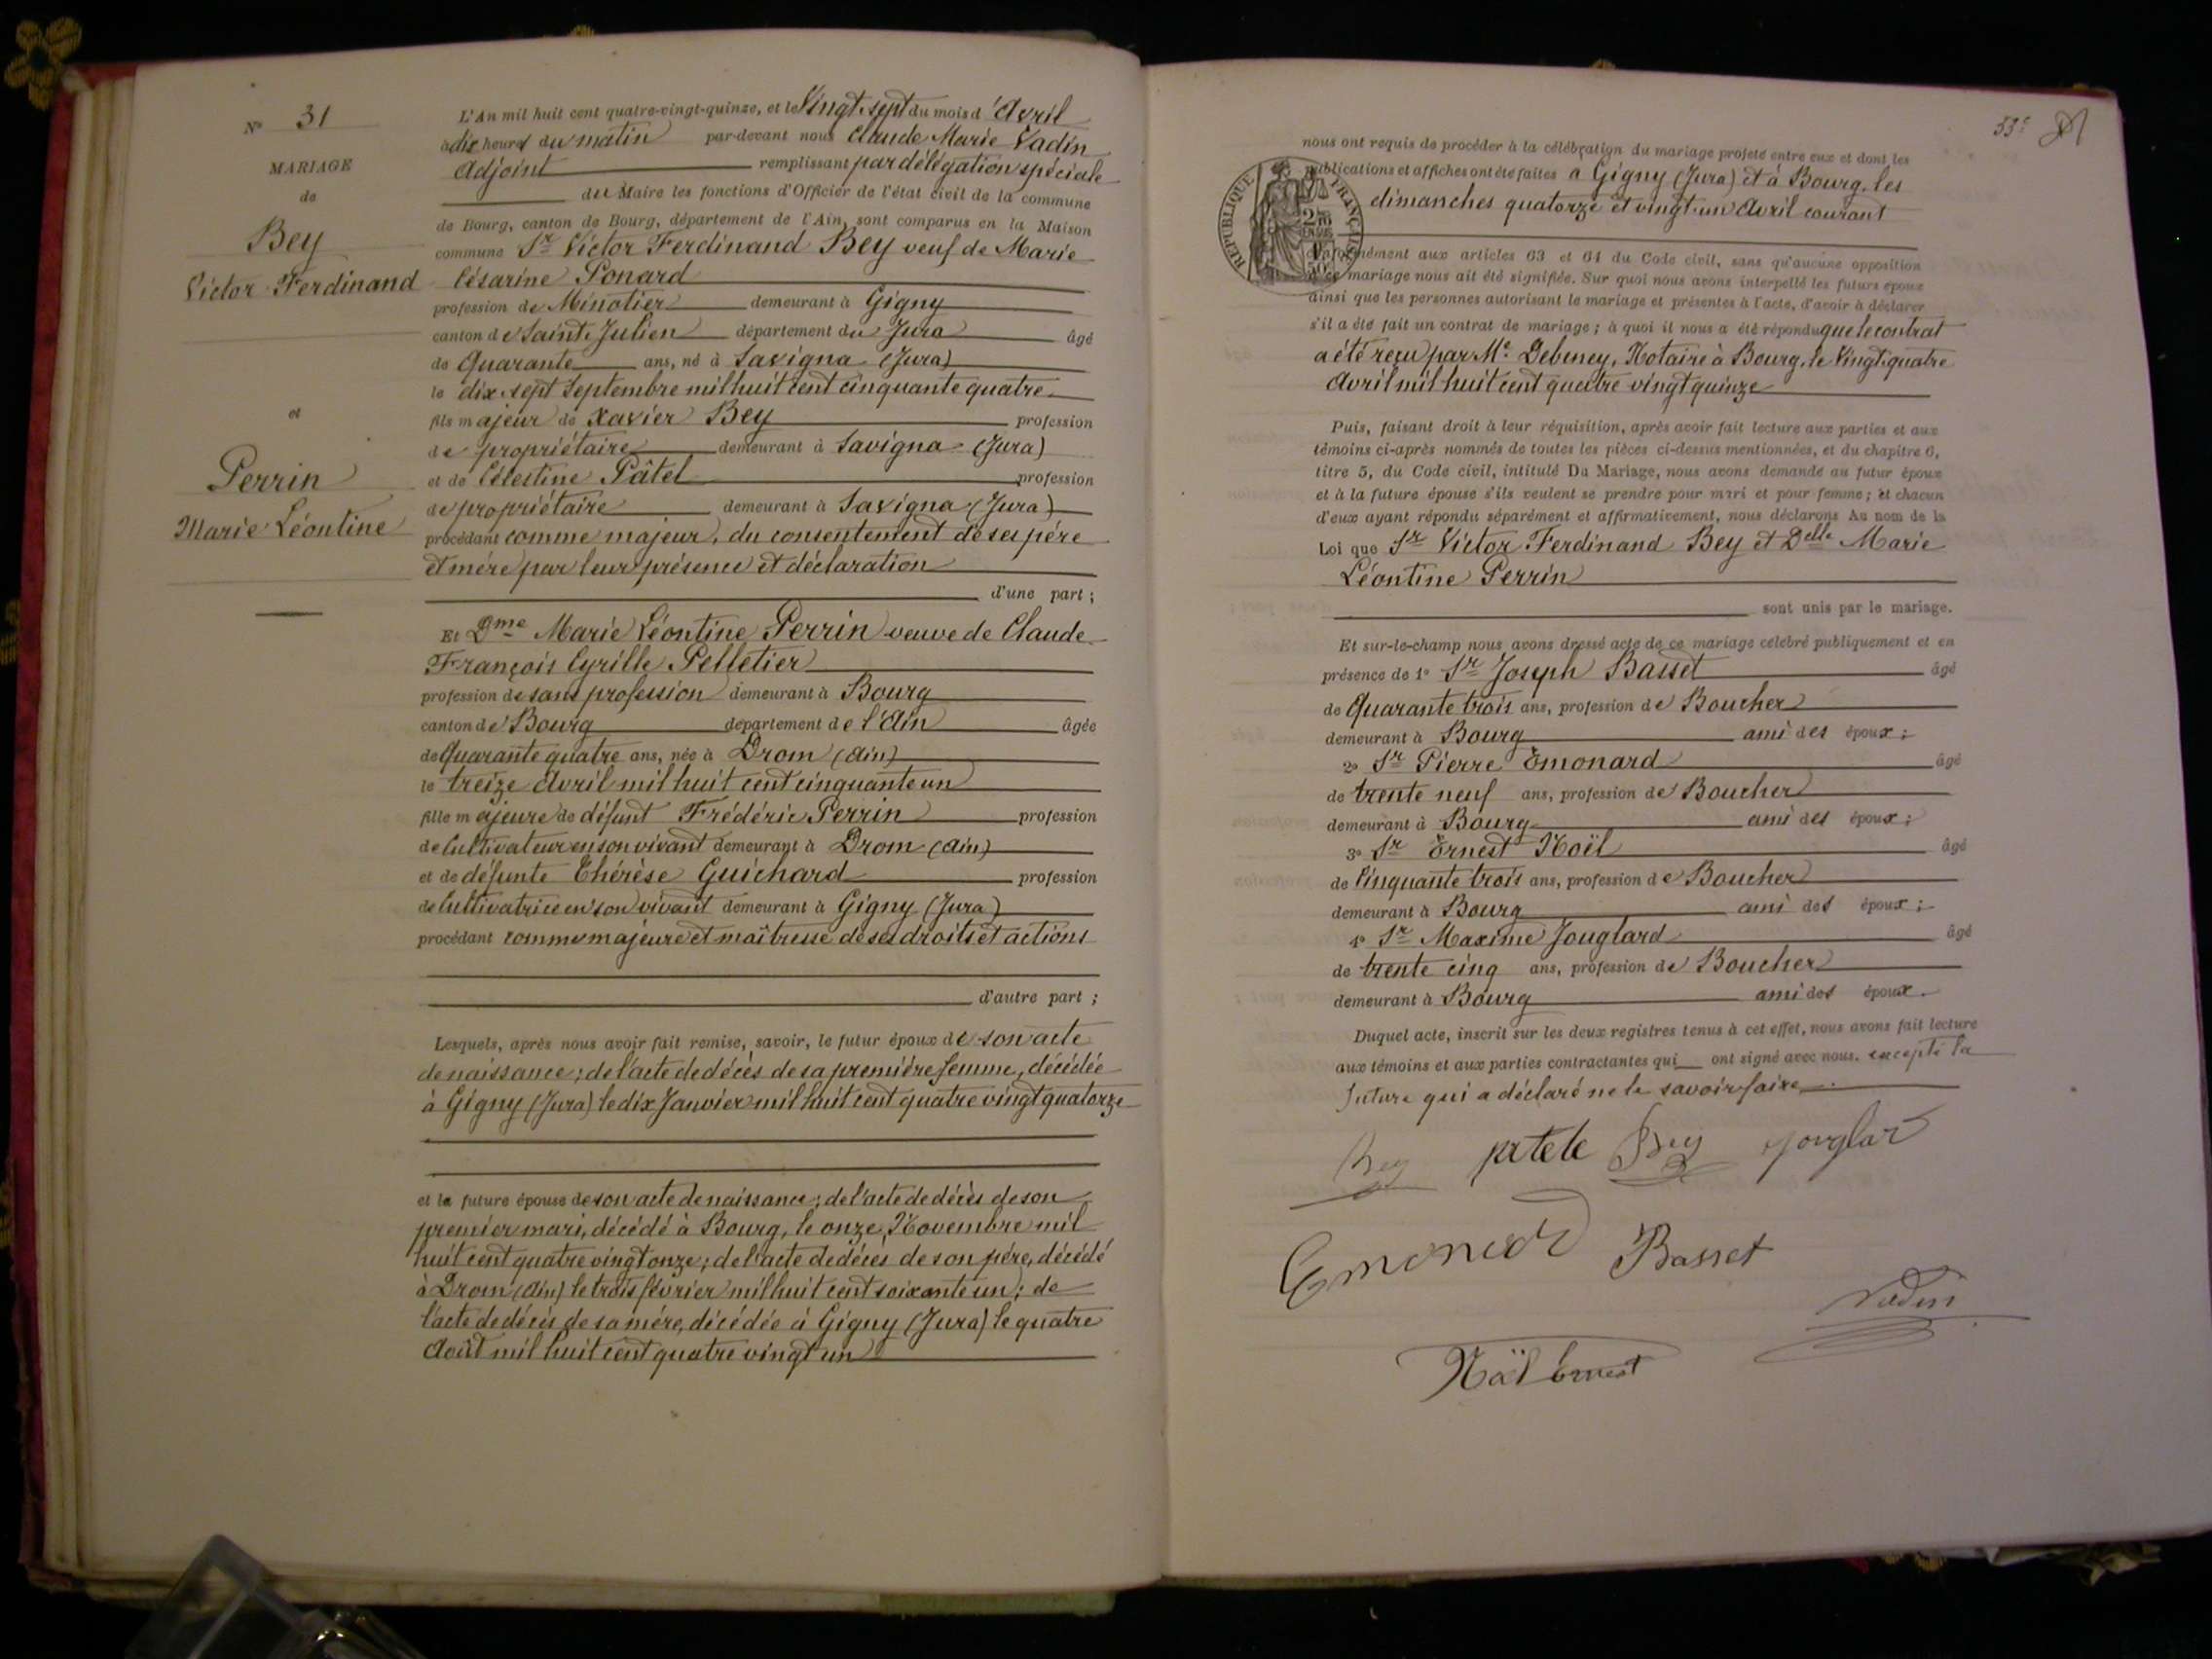 N° 31
MARIAGE
de
Bey
Victor Ferdinand
et
Perrin
Marie Léontine
L'An mil huit cent quatre-vingt-quinze, et le Vingt sept du mois d'Avril
à dix heures du matin par-devant nous Claude Marie Vadin
Adjoint remplissant par délégation spéciale
du Maire les fonctions d'Officier de l'état civil de la commune
de Bourg, canton de Bourg, département de l'Ain, sont comparus en la Maison
commune Sr Victor Ferdinand Bey veuf de Marie
Césarine Ponard
profession de Minotier demeurant à Gigny
canton de Saint Julien département du Jura âgé
de Quarante ans, né à Savigna (Jura)
le dix sept Septembre mil huit cent cinquante quatre
fils majeur de Xavier Bey profession
de propriétaire demeurant à Savigna (Jura)
et de Célestine Pâtel profession
de propriétaire demeurant à Savigna (Jura)
procédant comme majeur, du consentement de ses père
et mère par leur présence et déclaration
d'une part ;
Et Dme Marie Léontine Perrin veuve de Claude
François Cyrille Pelletier
profession de sans profession demeurant à Bourg
canton de Bourg département de l'Ain âgée
de Quarante quatre ans, née à Drom (Ain)
le treize Avril mil huit cent cinquante un
fille majeure de défunt Frédéric Perrin profession
de Cultivateur en son vivant demeurant à Drom (Ain)
et de défunte Thérèse Guichard profession
de Cultivatrice en son vivant demeurant à Gigny (Jura)
procédant comme majeure et maîtresse de ses droits et actions
d'autre part ;
Lesquels, après nous avoir fait remise, savoir, le futur époux de son acte
de naissance ; de l'acte de décès de sa première femme, décédée
à Gigny (Jura) le dix Janvier mil huit cent quatre vingt quatorze
et la future épouse de son acte de naissance ; de l'acte de décès de son
premier mari, décédé à Bourg, le onze Novembre mil
huit cent quatre vingt onze ; de l'acte de décès de son père, décédé
à Drom (Ain) le trois février mil huit cent soixante un ; de
l'acte de décès de sa mère, décédée à Gigny (Jura) le quatre
Août mil huit cent quatre vingt un
53e
nous ont requis de procéder à la célébration du mariage projeté entre eux et dont les
publications et affiches ont été faites à Gigny (Jura) et à Bourg, les
dimanches quatorze et vingt un Avril courant
RÉPUBLIQUE FRANÇAISE
conformément aux articles 63 et 64 du Code civil, sans qu'aucune opposition
à ce mariage nous ait été signifiée. Sur quoi nous avons interpellé les futurs époux
ainsi que les personnes autorisant le mariage et présentes à l'acte, d'avoir à déclarer
s'il a été fait un contrat de mariage ; à quoi il nous a été répondu que le contrat
a été reçu par Me Debeney, Notaire à Bourg, le Vingt quatre
Avril mil huit cent quatre vingt quinze
Puis, faisant droit à leur réquisition, après avoir fait lecture aux parties et aux
témoins ci-après nommés de toutes les pièces ci-dessus mentionnées, et du chapitre 6,
titre 5, du Code civil, intitulé Du Mariage, nous avons demandé au futur époux
et à la future épouse s'ils veulent se prendre pour mari et pour femme ; et chacun
d'eux ayant répondu séparément et affirmativement, nous déclarons Au nom de la
Loi que Sr Victor Ferdinand Bey et Delle Marie
Léontine Perrin
sont unis par le mariage.
Et sur-le-champ nous avons dressé acte de ce mariage célébré publiquement et en
présence de 1° Sr Joseph Basset âgé
de Quarante trois ans, profession de Boucher
demeurant à Bourg ami des époux ;
2° Sr Pierre Emonard âgé
de trente neuf ans, profession de Boucher
demeurant à Bourg ami des époux ;
3° Sr Ernest Noël âgé
de Cinquante trois ans, profession de Boucher
demeurant à Bourg ami des époux ;
4° Sr Maxime Jouglard âgé
de trente cinq ans, profession de Boucher
demeurant à Bourg ami des époux.
Duquel acte, inscrit sur les deux registres tenus à cet effet, nous avons fait lecture
aux témoins et aux parties contractantes qui ont signé avec nous. excepté la
future qui a déclaré ne le savoir faire.
Bey patele Bey jouglar
Emonard Basset
Vadin
Noël Ernest